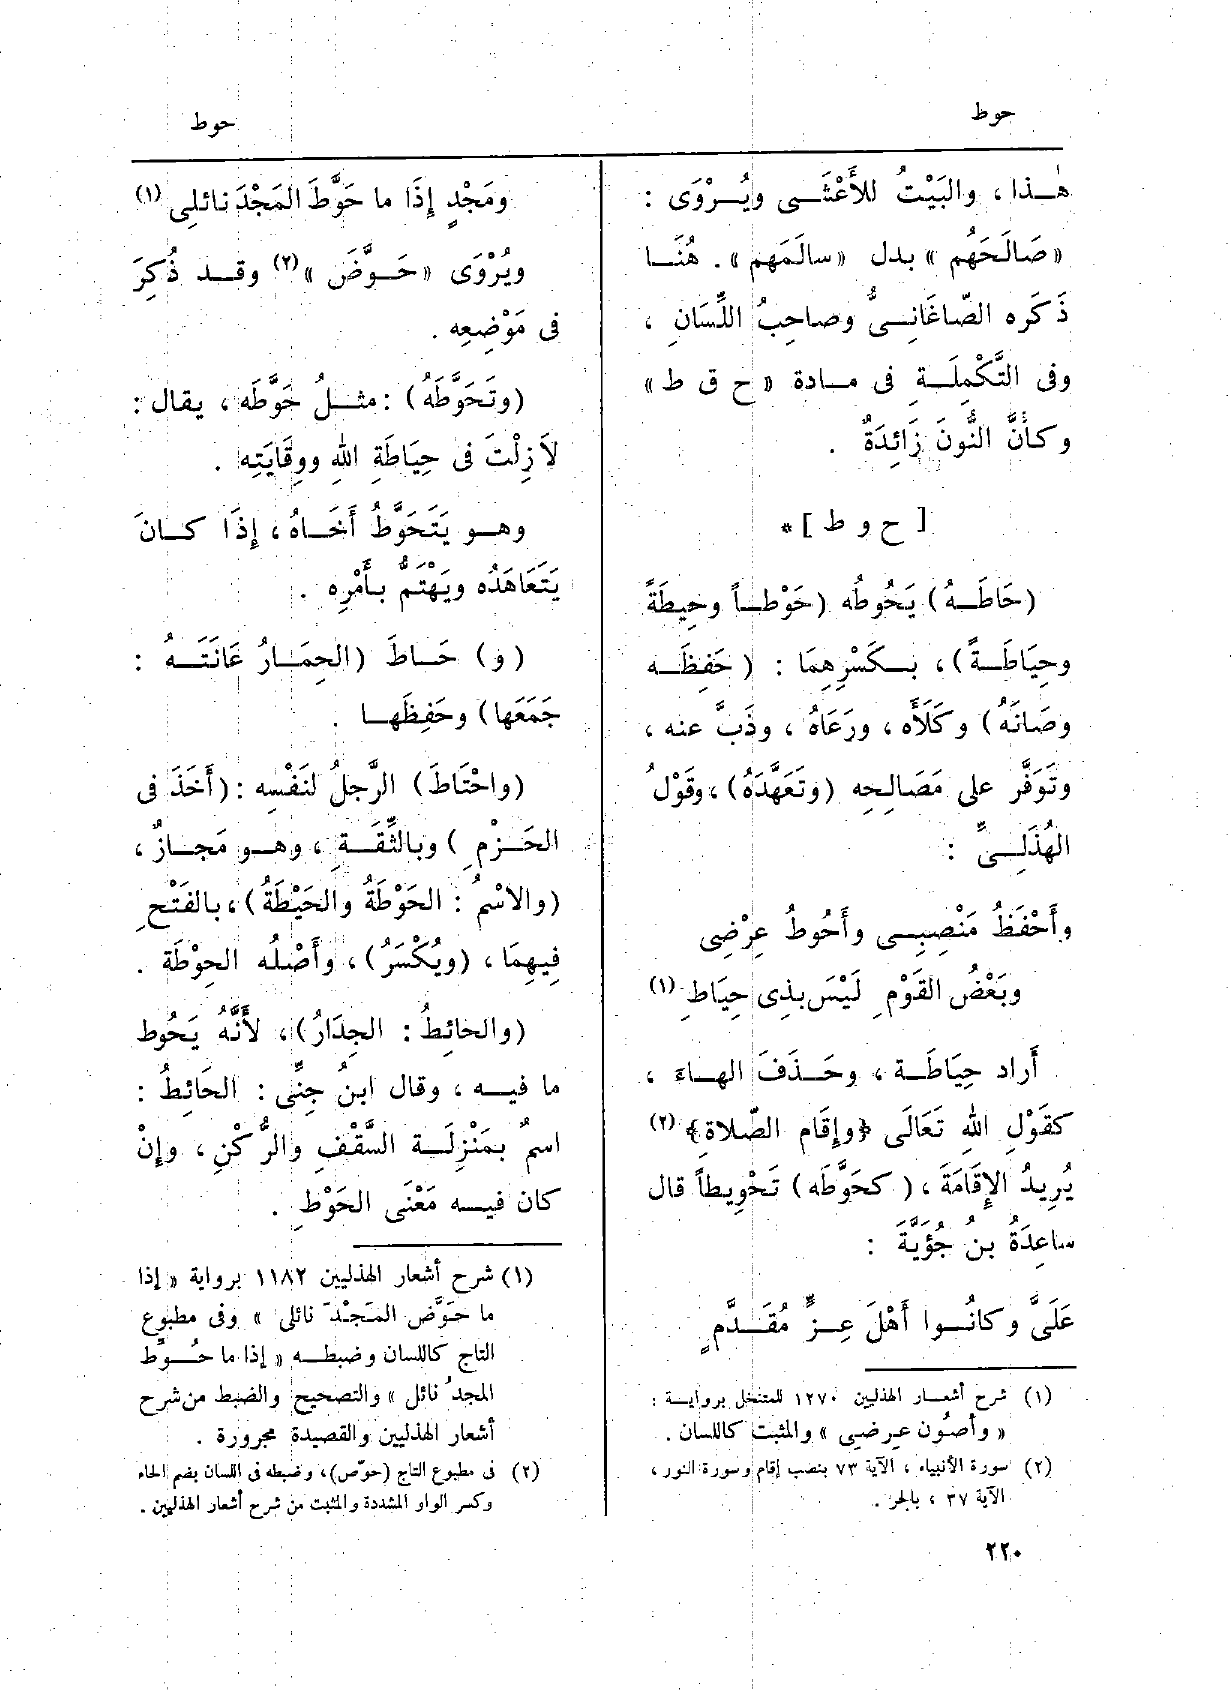 حوط
حوط
هٰذا ، والبَيْتُ للأَعْشَى ويُرْوَى :
« صَالَحَهُم » بدل « سالَمَهم » . هُنَا
ذَكَره الصّاغَانِىُّ وصاحِبُ اللِّسَانِ ،
وفى التَّكْمِلَةِ فى مادة « ح ق ط »
وكأَنَّ النُّونَ زَائِدَةٌ .
[ ح و ط ] *
(حَاطَهُ) يَحُوطُه (حَوْطاً وحِيطَةً
وحِيَاطَةً) ، بكَسْرِهِمَا : (حَفِظَه
وصَانَهُ) وكَلَأَه ، ورَعَاهُ ، وذَبَّ عنه ،
وتَوَفَّر على مَصَالِحِه (وتَعَهَّدَهُ) ، وقَوْلُ
الهُذَلِىِّ :
وأَحْفَظُ مَنْصِبِى وأَحُوطُ عِرْضِى
وبَعْضُ القَوْمِ لَيْسَ بذِى حِيَاطِ (١)
أَراد حِيَاطَة ، وحَذَفَ الهاءَ ،
كقَوْلِ اللهِ تَعَالَى ﴿وإِقَام الصَّلاةِ﴾ (٢)
يُرِيدُ الإِقَامَةَ ، (كحَوَّطَه) تَحْوِيطاً قال
ساعِدَةُ بنُ جُؤَيَّةَ :
عَلَىَّ وكانُوا أَهْلَ عِزٍّ مُقَدَّمٍ
(١) شرح أشعار الهذليين ١٢٧٠ للمتنخل برواية :
« وأصُون عِرضِى » والمثبت كاللسان .
(٢) سورة الأنبياء ، الآية ٧٣ بنصب إقام وسورة النور ،
الآية ٣٧ ، بالجر .
ومَجْدٍ إِذَا ما حَوَّطَ المَجْدَ نائلِى (١)
ويُرْوَى « حَوَّضَ » (٢) وقد ذُكِرَ
فى مَوْضِعِه .
(وتَحَوَّطَهُ) : مثلُ حَوَّطَه ، يقال :
لاَ زِلْتَ فى حِيَاطَةِ اللهِ ووِقَايَتِه .
وهو يَتَحَوَّطُ أَخَاهُ ، إِذَا كانَ
يَتَعَاهَدُه ويَهْتَمُّ بأَمْرِه .
(و) حَاطَ (الحِمَارُ عَانَتَهُ :
جَمَعَها) وحَفِظَها .
(واحْتَاطَ) الرَّجلُ لنَفْسِه : (أَخَذَ فى
الحَزْمِ) وبالثِّقَةِ ، وهو مَجازٌ ،
(والاسْمُ : الحَوْطَةُ والحَيْطَةُ) ، بالفَتْحِ
فِيهِمَا ، (ويُكْسَرُ) ، وأَصْلُه الحِوْطَة .
(والحائِطُ : الجِدَارُ) ، لأَنَّهُ يَحُوط
ما فيه ، وقال ابنُ جِنِّى : الحَائِطُ :
اسمٌ بمَنْزِلَة السَّقْفِ والرُّكْنِ ، وإِنْ
كان فيه مَعْنَى الحَوْطِ .
(١) شرح أشعار الهذليين ١١٨٢ برواية « إذا
ما حَوَّض المَجْدَ نائلى » وفى مطبوع
التاج كاللسان وضبطه « إذا ما حُوِّط
المجدُ نائل » والتصحيح والضبط من شرح
أشعار الهذليين والقصيدة مجرورة .
(٢) فى مطبوع التاج (حوض) ، وضبطه فى اللسان بضم الحاء
وكسر الواو المشددة والمثبت من شرح أشعار الهذليين .
٢٢٠